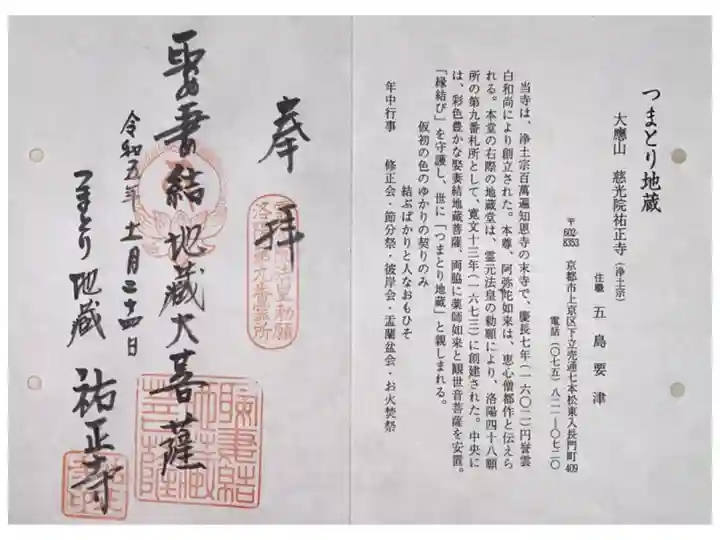 奉拝
娶妻結地蔵大菩薩
令和五年十一月二十四日
つまとり地蔵
祐正寺
つまとり地蔵
大應山 慈光院祐正寺(浄土宗)
住職 五島要津
〒602-8353 京都市上京区下立売通七本松東入長門町409
電話(〇七五)八二一―〇七二〇
当寺は、浄土宗百萬遍知恩寺の末寺で、慶長七年(一六〇二)円誉雲
白和尚により創立された。本尊、阿弥陀如来は、恵心僧都作と伝えら
れる。本堂の右際の地蔵堂は、霊元法皇の勅願により、洛陽四十八願
所の第九番札所として、寛文十三年(一六七三)に創建された。中央に
は、彩色豊かな娶妻結地蔵菩薩、両脇に薬師如来と観世音菩薩を安置。
「縁結び」を守護し、世に「つまとり地蔵」と親しまれる。
仮初の色のゆかりの契りのみ
結ぶばかりと人なおもひそ
年中行事 修正会・節分祭・彼岸会・盂蘭盆会・お火焚祭